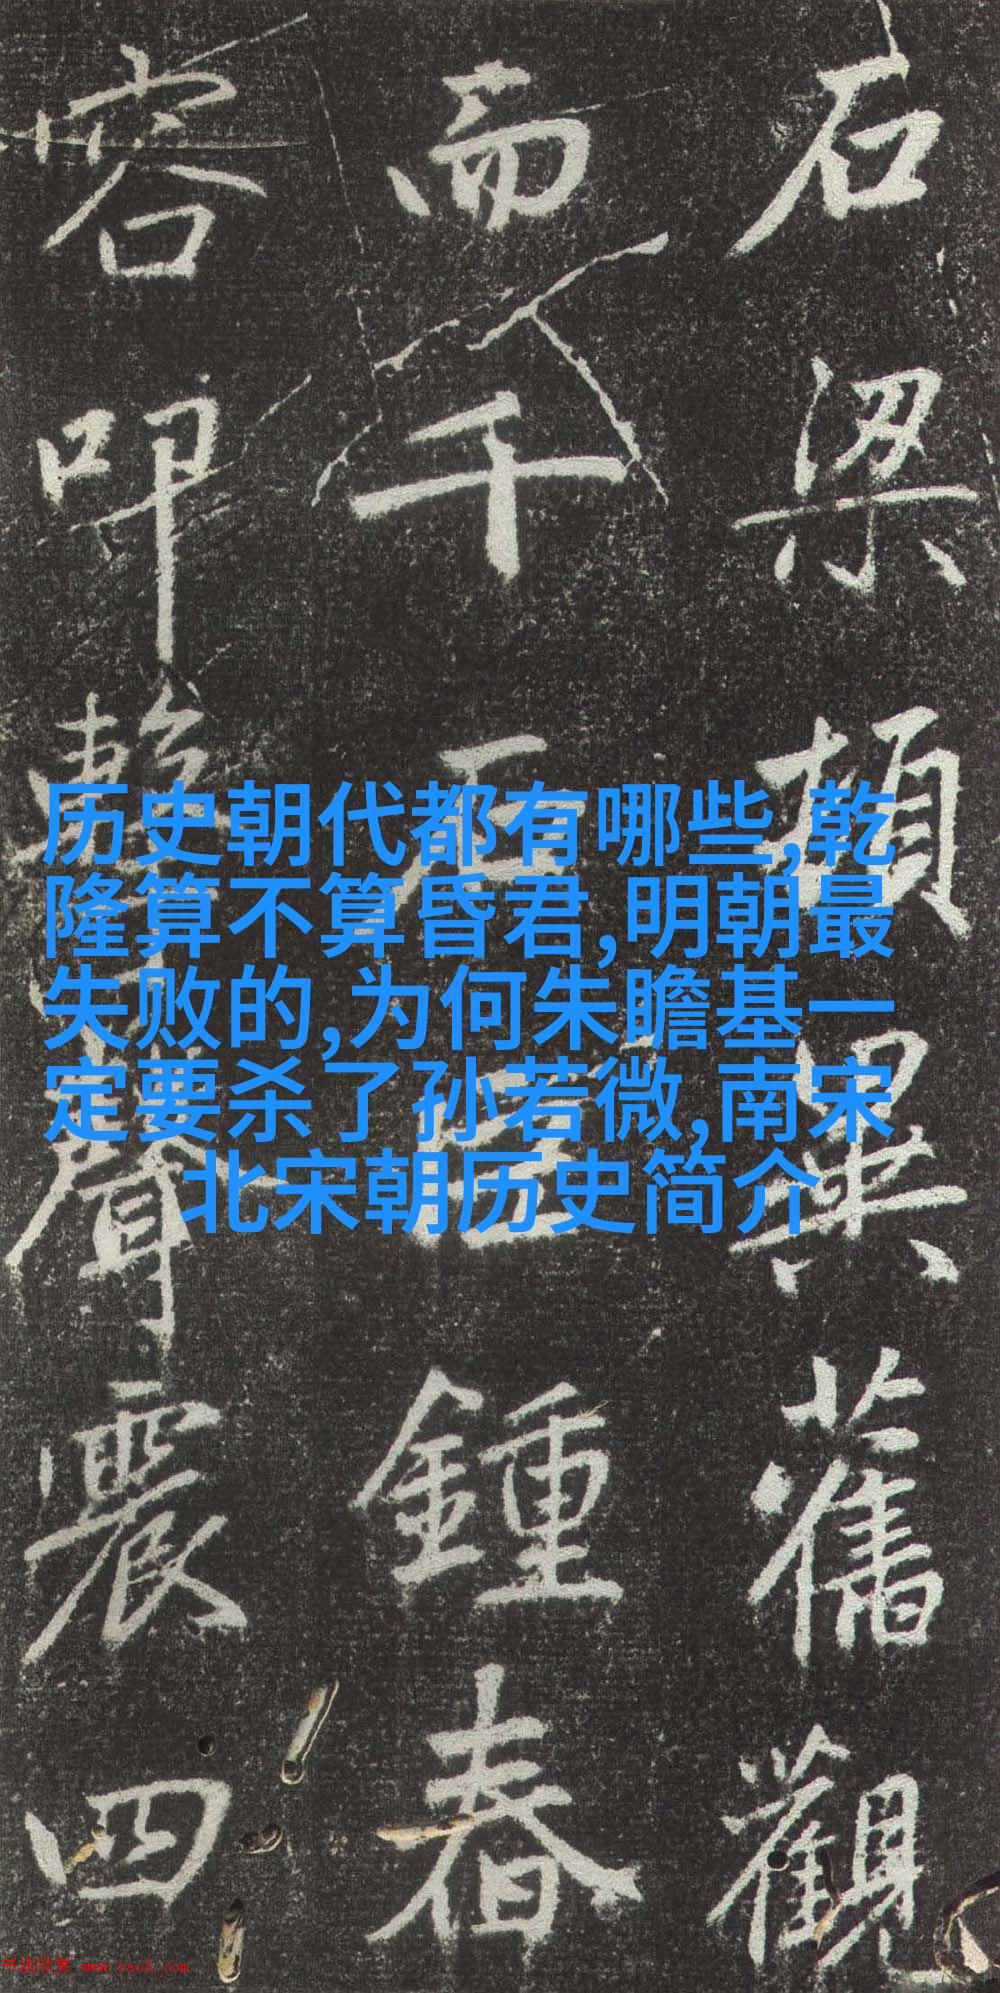 石梁頓異舊觀
而千石鍾舂
容叩擊聲震四
历史朝代都有哪些,乾
隆算不算昏君,明朝最
失败的,为何朱瞻基一
定要杀了孙若微,南宋
北宋朝历史简介
书法欣赏 www.yac8.com